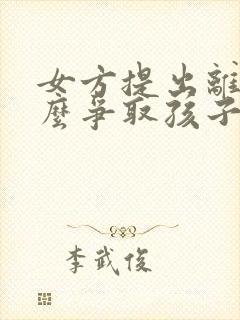 女方提出離
麼爭取孩子
李武俊